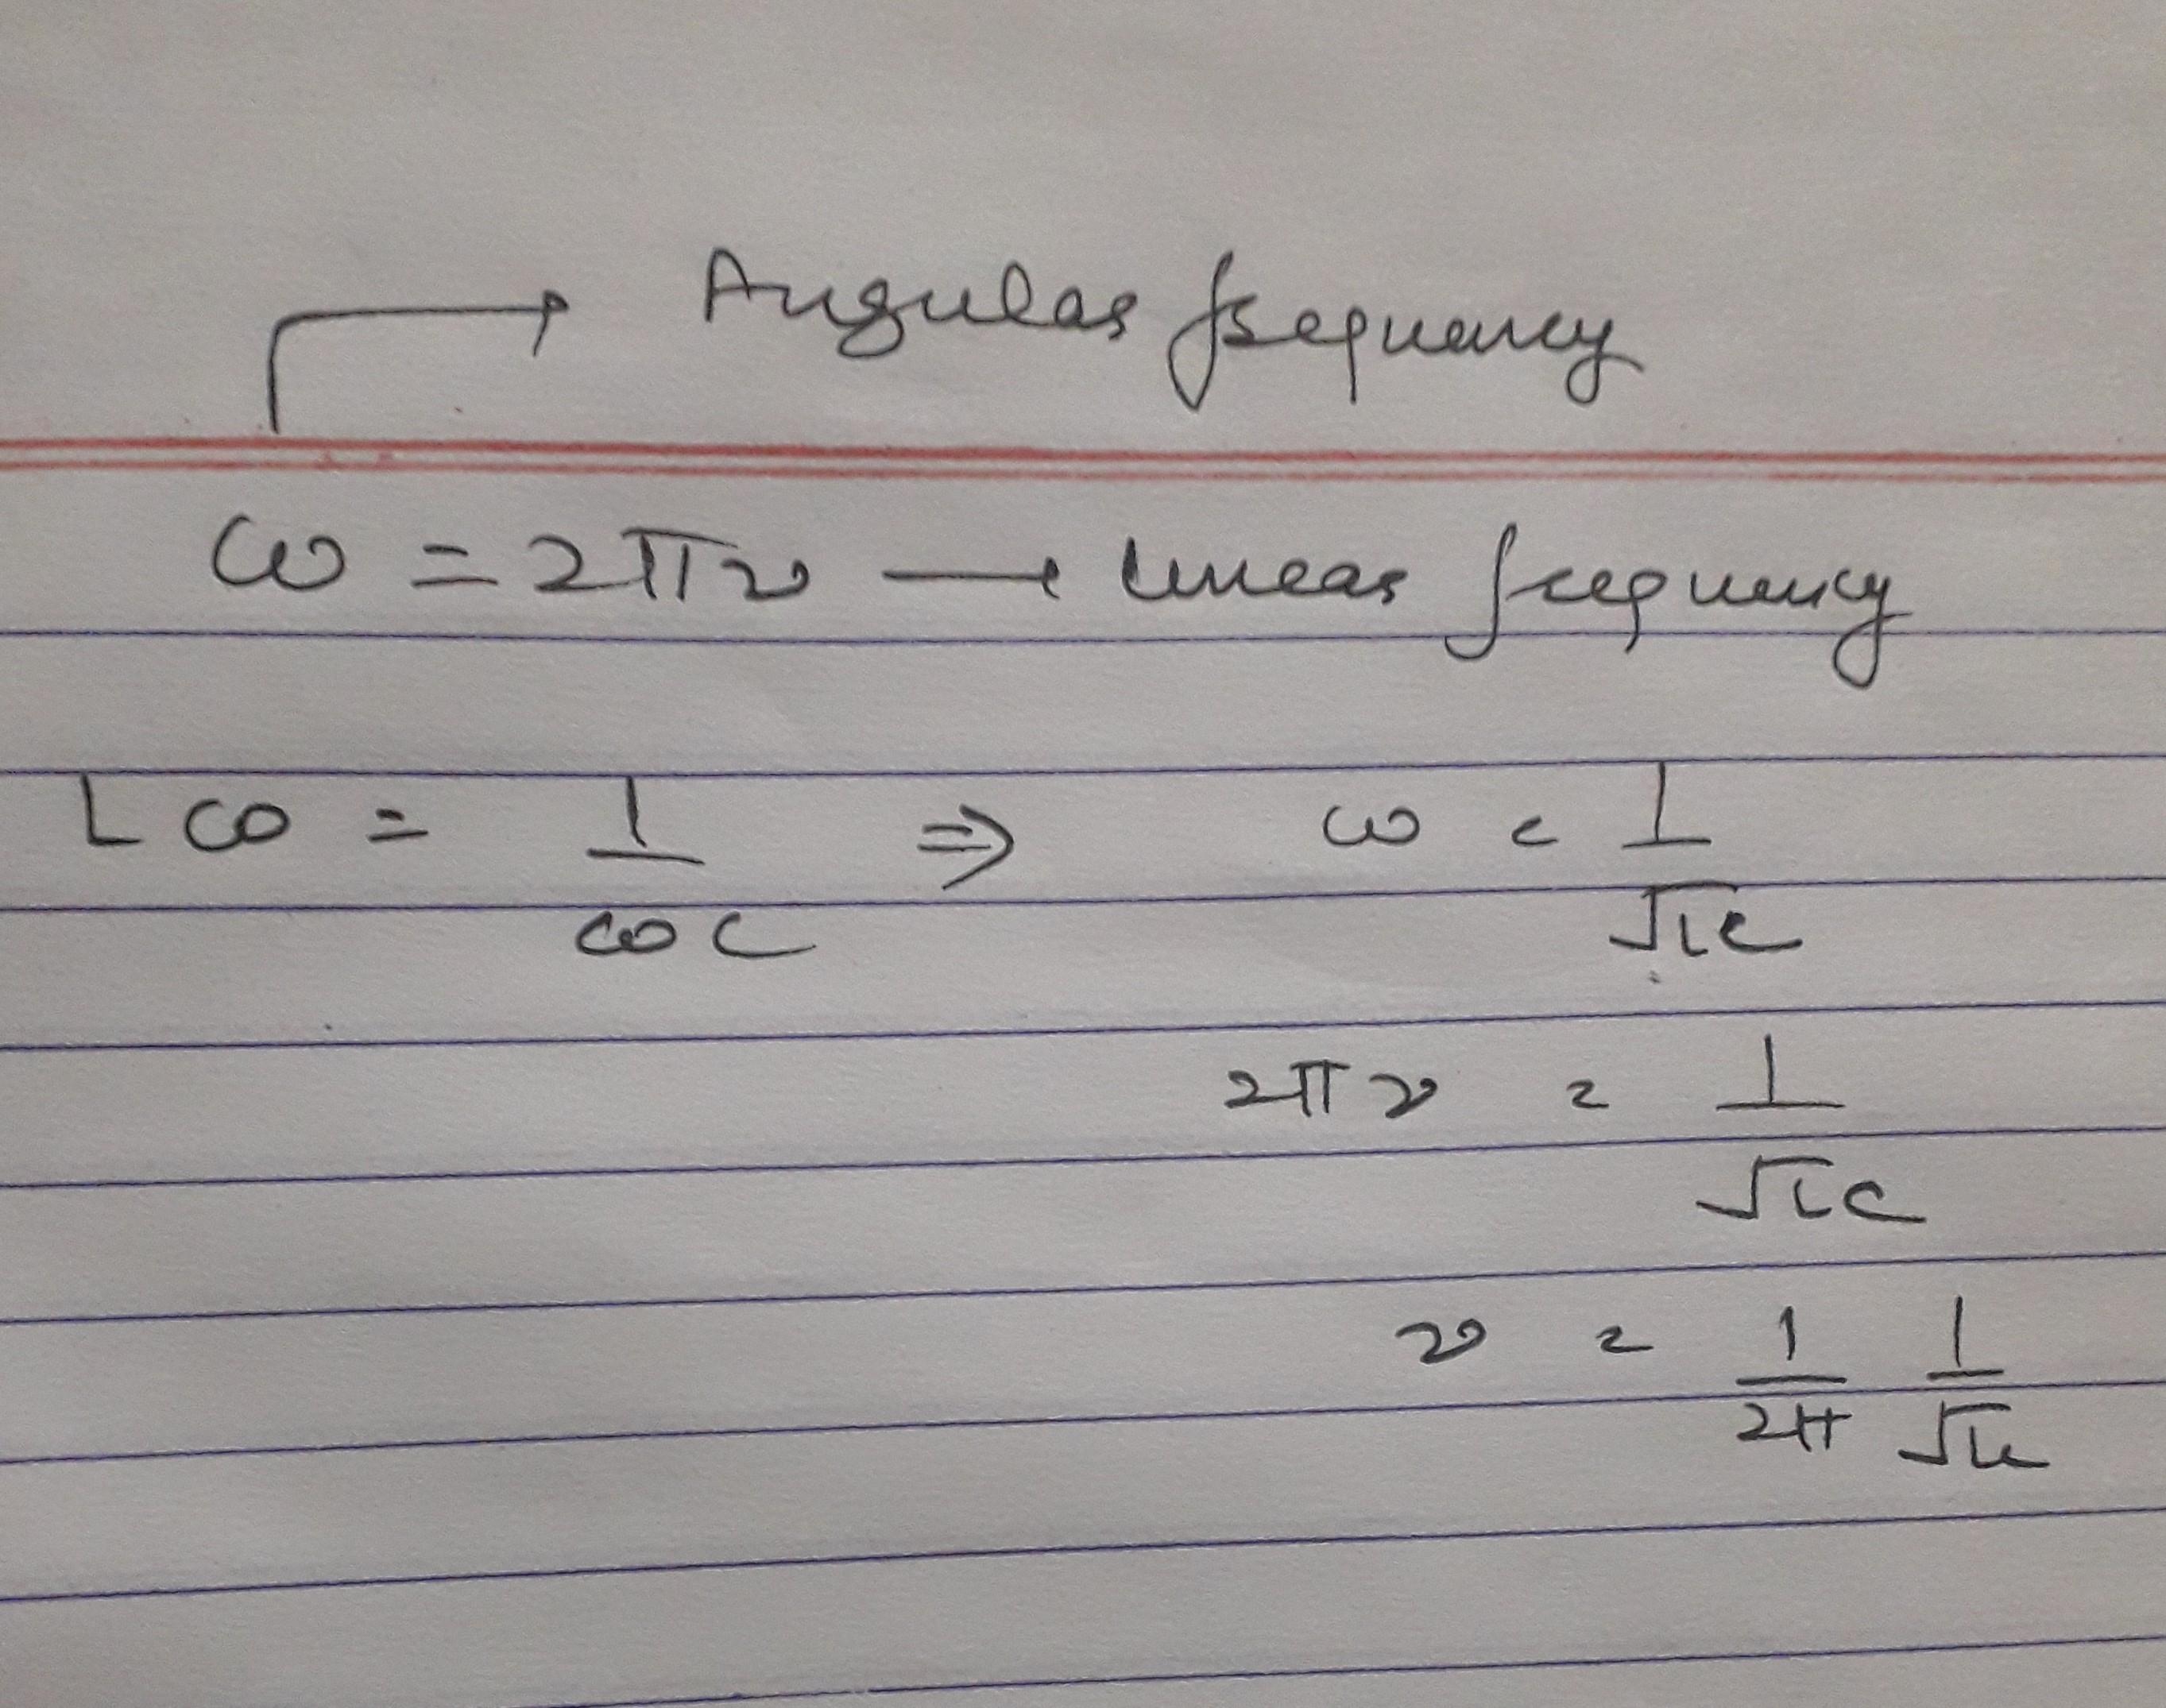 → Angular frequency
ω = 2πν → Linear frequency
Lω = 1/ωC ⇒ ω = 1/√LC
2πν = 1/√LC
ν = 1/2π 1/√LC